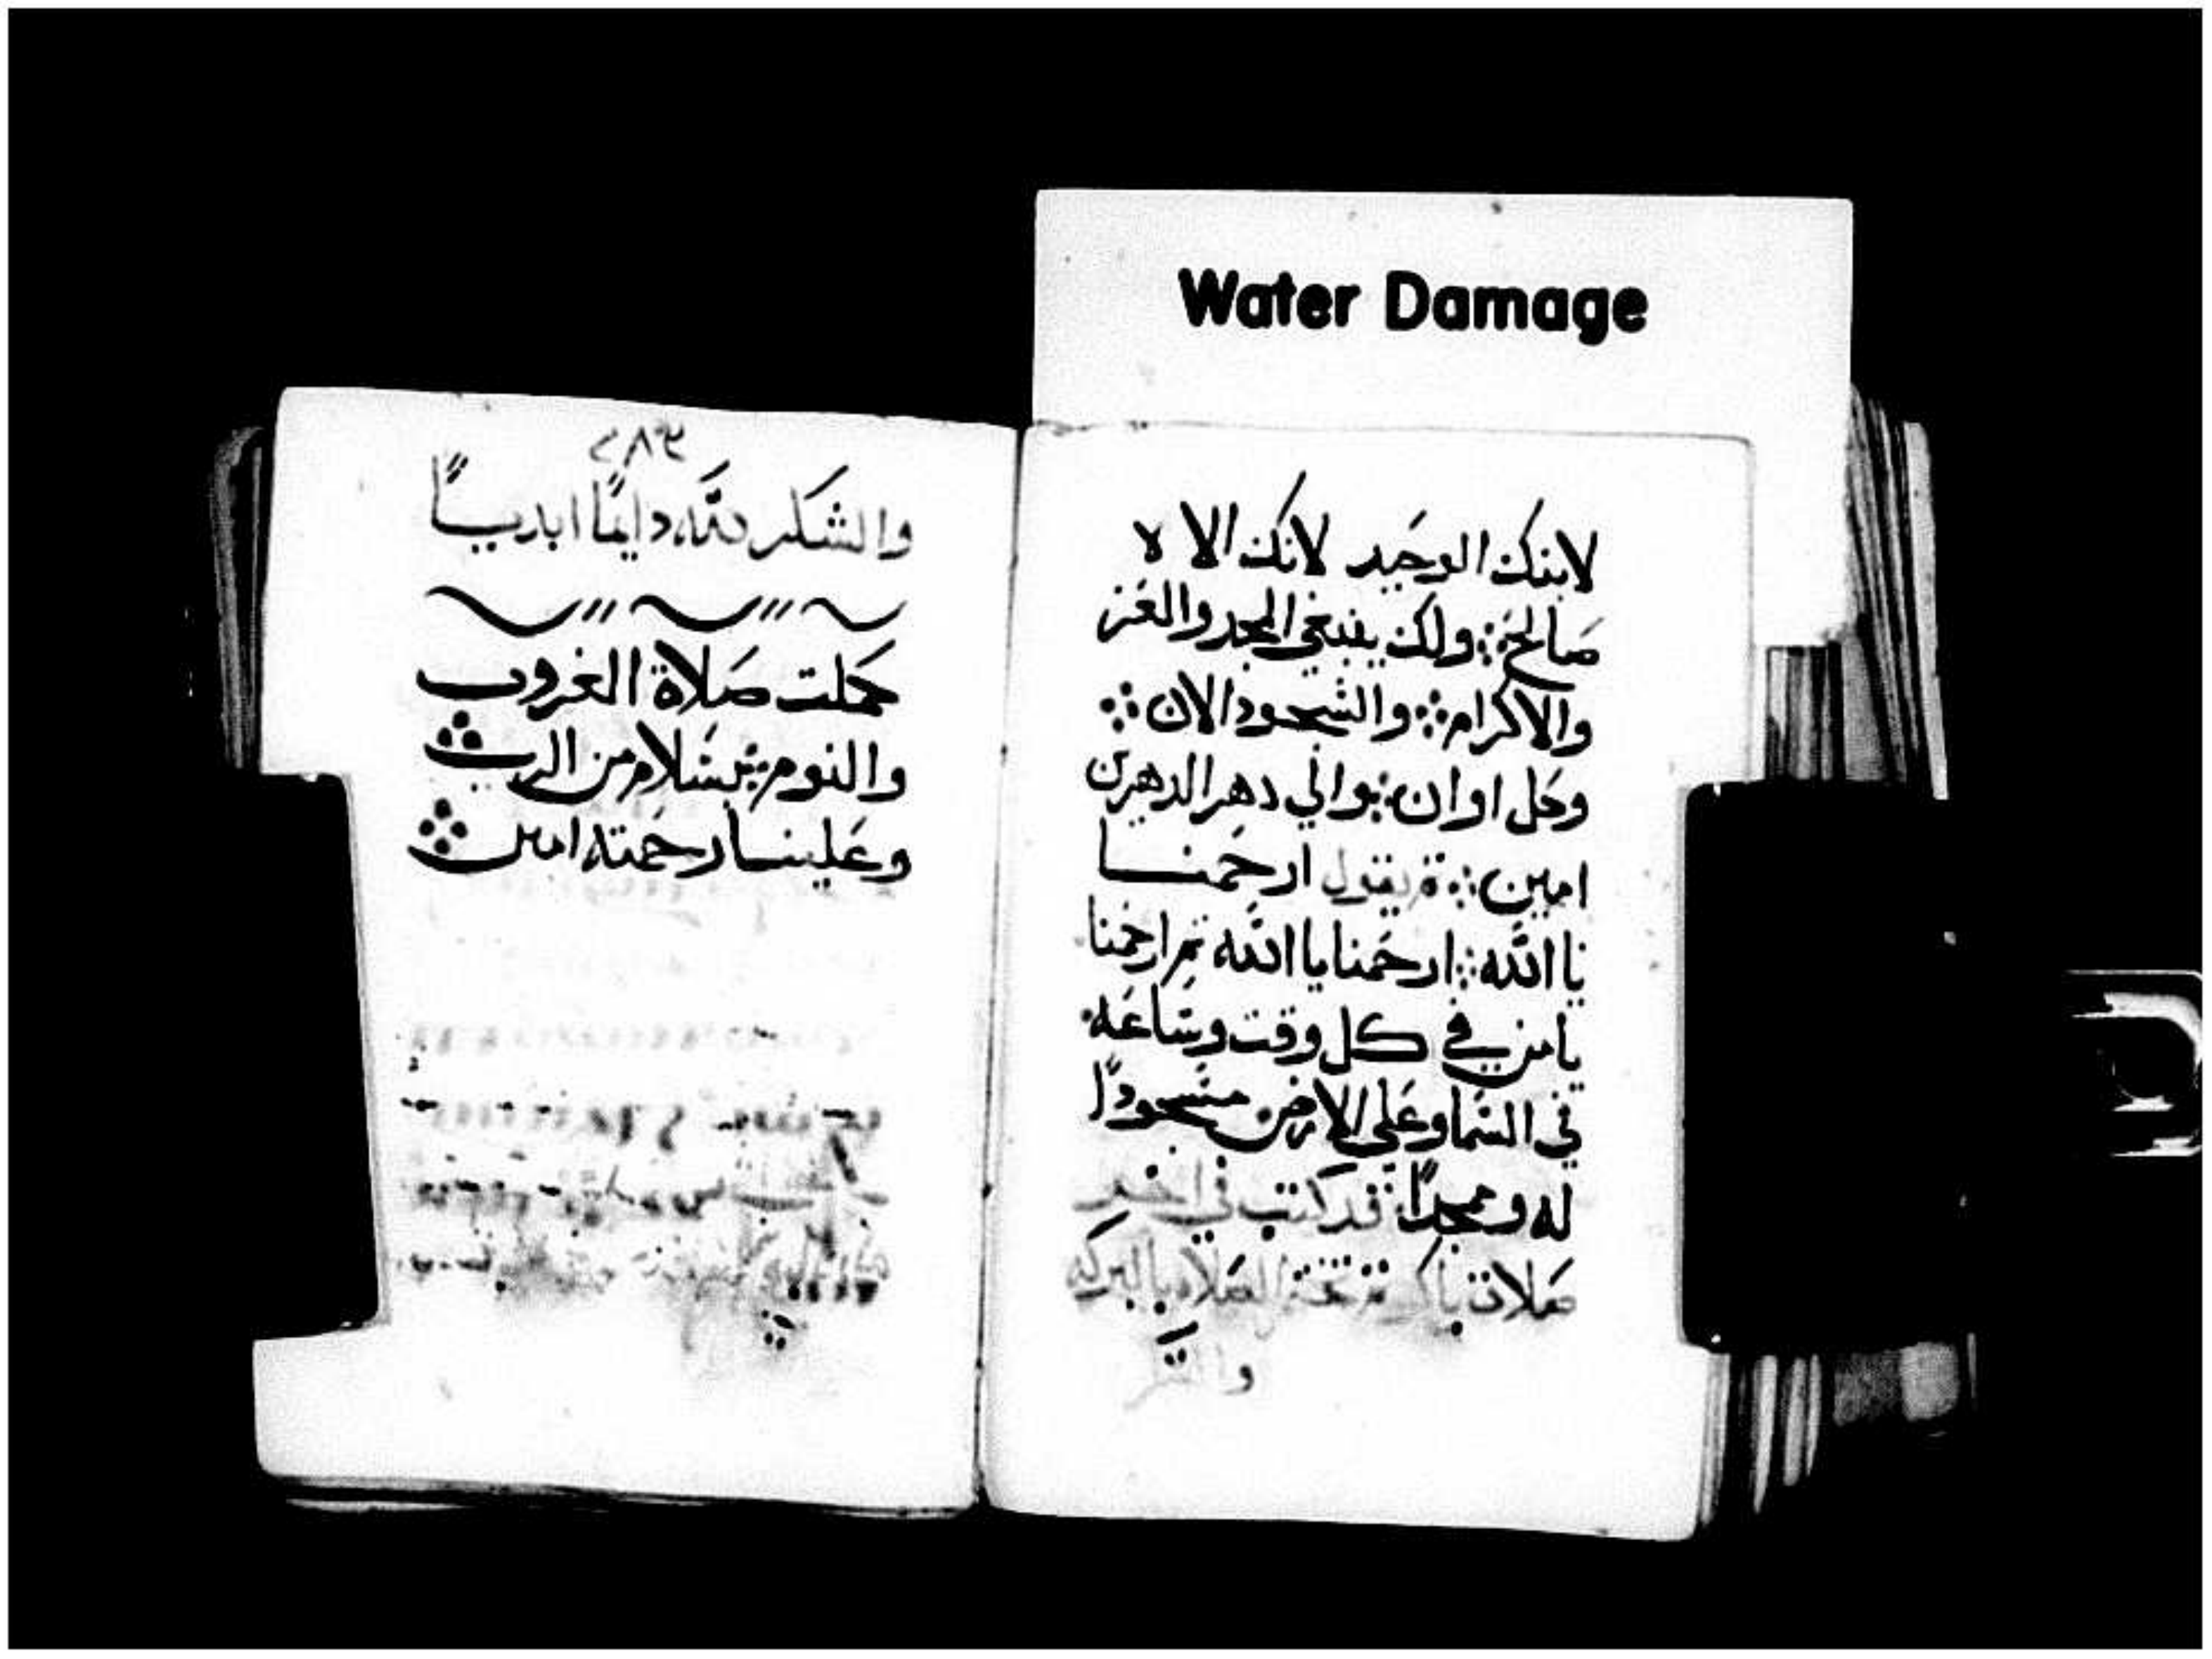 Water Damage
لابنك الوحيد لانك الاه
صالح ولك ينبغي المجد والعز
والاكرام والسجود الان
وكل اوان والي دهر الدهرين
امين ثم يقول ارحمنا
يا الله ارحمنا يا الله ثم ارحمنا
يا من في كل وقت وساعه
في السما وعلي الارض مسجودًا
له وممجدًا قد كتب في اخر
صلاة باكر الصلاه بالبركه
والشكر لله دايمًا ابديًا
كملت صلاة الغروب
والنوم بسلام من الرب
وعلينا رحمته امين